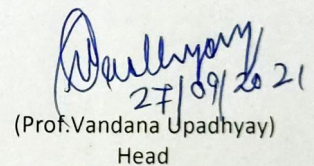 27/09/2021
(Prof.Vandana Upadhyay)
Head